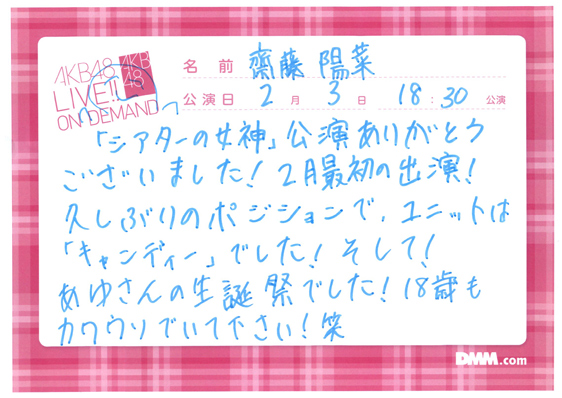 AKB48 AKB48
LIVE!! ON DEMAND
名前 齋藤 陽菜
公演日 2月 3日 18:30 公演
「シアターの女神」公演ありがとう
ございました！2月最初の出演！
久しぶりのポジションで、ユニットは
「キャンディー」でした！そして！
あゆさんの生誕祭でした！18歳も
カワウソでいて下さい！笑
DMM.com